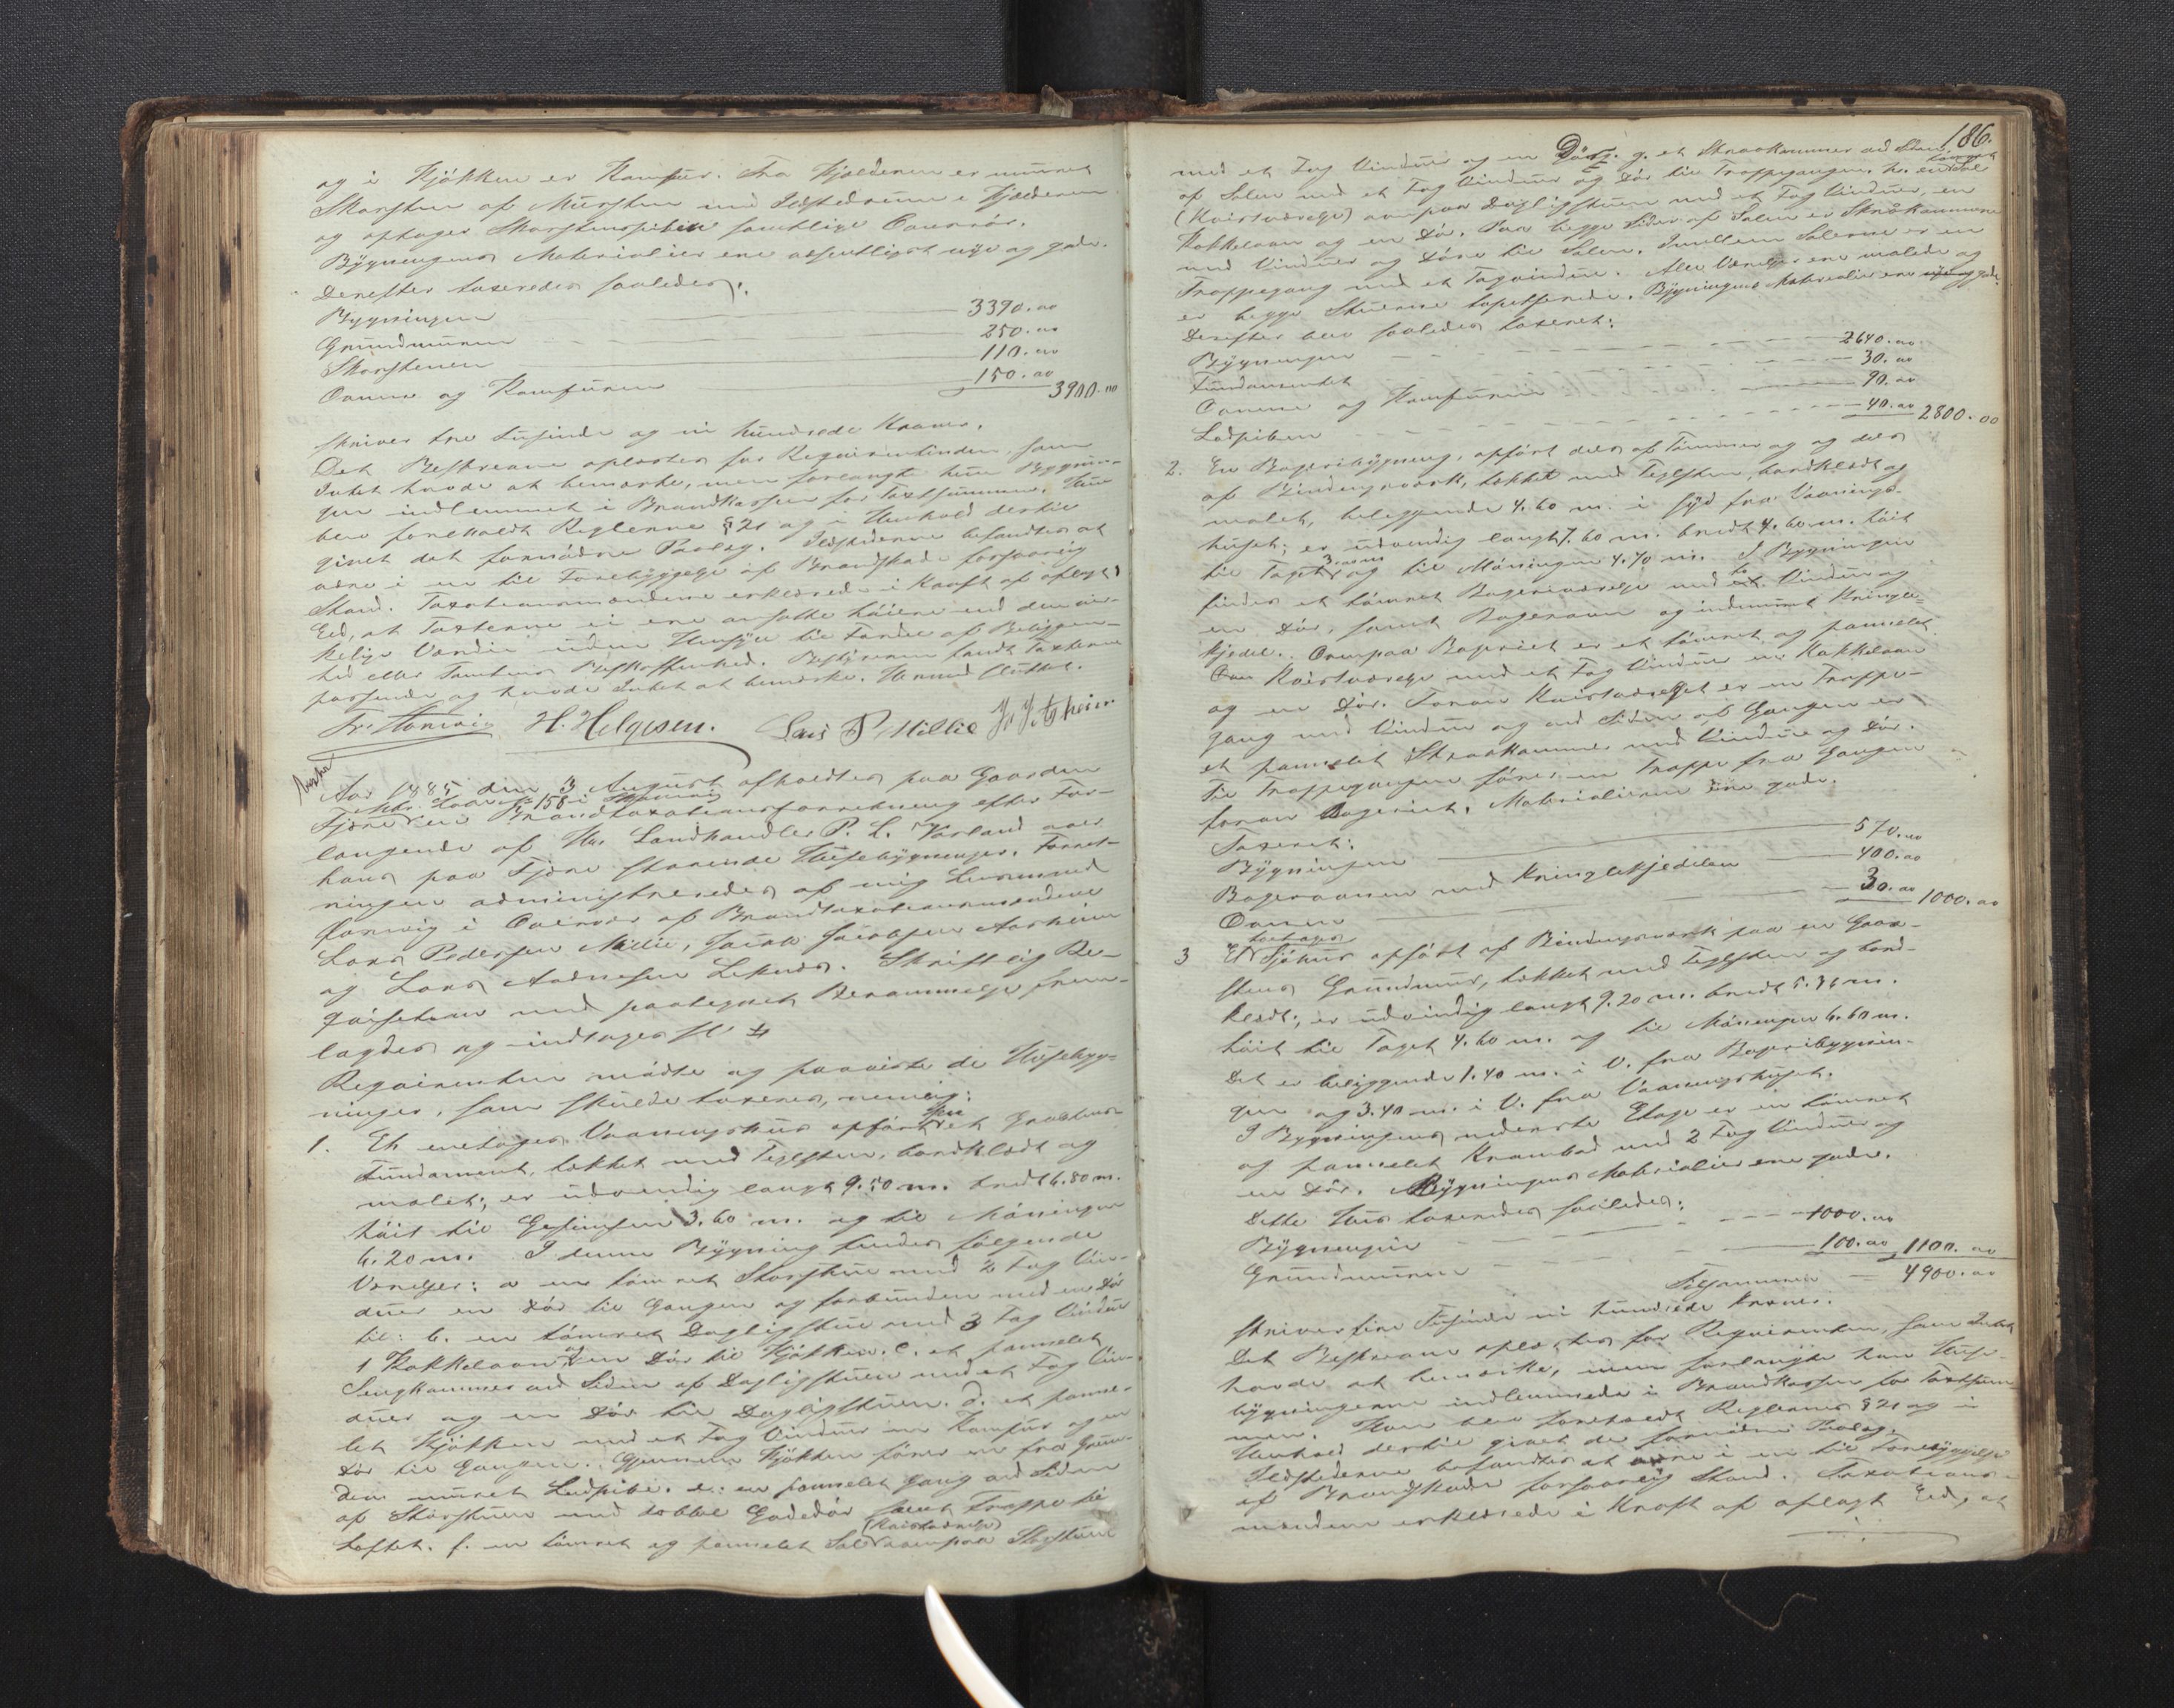 og i Kjøkken er Komfur. Fra Kjelderen er muret
Skorsten af Mursten med Ildstedrum i Kjelderen
og optager Skorstenspiben samtlige Ovnsrør.
Bygningens Materialier ere væsentligst nye og gode.
Derefter taxeredes saaledes:
Bygningen 3390.00
Grundmuren 250.00
Skorstenen 110.00
Ovne og Komfuren 150.00 3900.00
skriver tre Tusinde og ni hundrede Kroner.
Det Beskrevne oplæstes for Reqvirentinden, som
Intet havde at bemærke, men forlangte sin Bygnin-
gen indlemmet i Brandkassen for Taxtsummen. Hun
blev foreholdt Reglerne § 21 og i Henhold dertil
givet det fornødne Paalæg. Ildstederne befandtes at
være i en til Forebyggelse af Brandskade forsvarlig
Stand. Taxationsmændene erklærede i Kraft af aflagt
Eed, at Taxterne ei ere ansatte høiere end den vir-
kelige Værdi uden Hensyn til Fordel af Beliggen-
hed eller Tomtens Beskaffenhed. Bestyreren fandt Taxterne
passende og havde Intet at bemærke. Hermed sluttet.
H. Helgesen. Lars P. Millie J. J. Aasheim
Aar 1885 den 3 August afholdtes paa Gaarden
Mtr. Løbe No 158 i
Fjære en Brandtaxationsforretning efter For-
langende af Hr. Landhandler P. L. Varland over
hans paa Fjære staaende Husebygninger. Forret-
ningen administreredes af mig Lensmand
i Overvær af Brandtaxationsmændene
Lars Pedersen Millie, Jacob Jacobsen Aasheim
og Lars Andersen Leknes. Skriftlig Re-
qvisition med paategnet Berammelse frem-
lagdes og indtages sl.
Reqvirenten mødte og paaviste de Husebyg-
ninger, som skulde taxeres, nemlig:
1. Et enetages Vaaningshus opført paa et Graastens
Fundament, tækket med Teglsten, bordklædt og
malet; er udvendig langt 9.50 m. bredt 6.80 m.
høit til Gesimsen 3.60 m. og til Møningen
6.20 m. I denne Bygning findes følgende
Værelser: a en tømret Storstue med 2 Fag Vin-
duer en Dør til Gangen og forbunden med en Dør
til: b. en tømret Dagligstue med 3 Fag Vinduer
1 Kakkelovn og en Dør til Kjøkken. c. et pannelet
Sengkammer ved Siden af Dagligstuen med et Fag Vin-
duer og en Dør til Dagligstuen. d. et panne-
let Kjøkken med et Fag Vinduer en Komfur og en
Dør til Gangen. Gjennem Kjøkken fører en fra Grun-
den muret Ludpibe. e: en pannelet Gang ved Siden
af Storstuen med dobbel Gadedør samt Trappe til
(Kvistværelse)
Loftet. f. en tømret og pannelet Sal ovenpaa Storstuen
186.
med et Fag Vinduer og en Dør. g. et Skraakammer ved Siden
af Salen med et Fag Vinduer og Dør til Trappegangen. h. en tømret Sal
(Kvistværelse) ovenpaa Dagligstuen med et Fag Vinduer, en
Kakkelovn og en Dør. Paa begge Sider af Salen er Skråkammere
med Vinduer og Døre til Salen. Imellem Salerne er en
Trappegang med et Tagvindue. Alle Værelser ere malede og
er begge Stuerne tapetserede. Bygningens Materialier ere nye og gode.
Derefter blev saaledes taxeret:
Bygningen 2640.00
Fundamentet 30.00
Ovnene og Komfuren 90.00
Ludpiben 40.00 2800.00
2. En Bageribygning, opført dels af Tømmer og og dels
af Bindingsværk, tækket med Teglsten, bordklædt og
malet, beliggende 4.60 m. i Syd fra Vaanings-
huset; er udvendig langt 7.60 m. bredt 4.60 m. høit
til Taget 3.00 m og til Møningen 4.70 m. I Bygningen
findes et tømret Bageriværelse med to Vinduer og
en Dør, samt Bagerovn og indmuret Kringle-
kjedel. Ovenpaa Bageriet er et tømret og pannelet
Kvistværelse med et Fag Vinduer en Kakkelovn
og en Dør. Foran Kvistværelset er en Trappe-
gang med Vindue og ved Siden af Gangen er
et pannelet Skraakammer med Vindue og Dør.
Til Trappegangen fører en Trappe fra Gangen
foran Bageriet. Materialierne ere gode.
Taxeret:
Bygningen 570.00
Bagerovnen med Kringlekjedelen 400.00
Ovnen 30.00 1000.00
3 Et toetages Sjøhus opført af Bindingsværk paa en Graa-
stens Grundmur, tækket med Teglsten og bord-
klædt; er udvendig langt 9.20 m. bredt 5.36 m.
høit til Taget 4.60 m. og til Møningen 6.60 m.
Det er beliggende 1.40 m. i V. fra Bageribygnin-
gen og 3.40 m. i V. fra Vaaningshuset.
I Bygningens nederste Etage er en tømret
og pannelet Krambod med 2 Fag Vinduer og
en Dør. Bygningens Materialier ere gode.
Dette Hus taxeredes saaledes:
Bygningen 1000.00
Grundmuren 100.00 1100.00
Tilsammen 4900.00
skriver fire Tusinde ni hundrede Kroner.
Det Beskrevne oplæstes for Reqvirenten, som Intet
havde at bemærke, men forlangte han Huse-
bygningerne indlemmede i Brandkassen for Taxtsum-
men. Han blev foreholdt Reglerne § 21 og i
Henhold dertil givet de fornødne Paalæg.
Ildstederne befandtes at være i en til Forebyggelse
af Brandskade forsvarlig Stand. Taxations-
mændene erklærede i Kraft af aflagt Eed, at